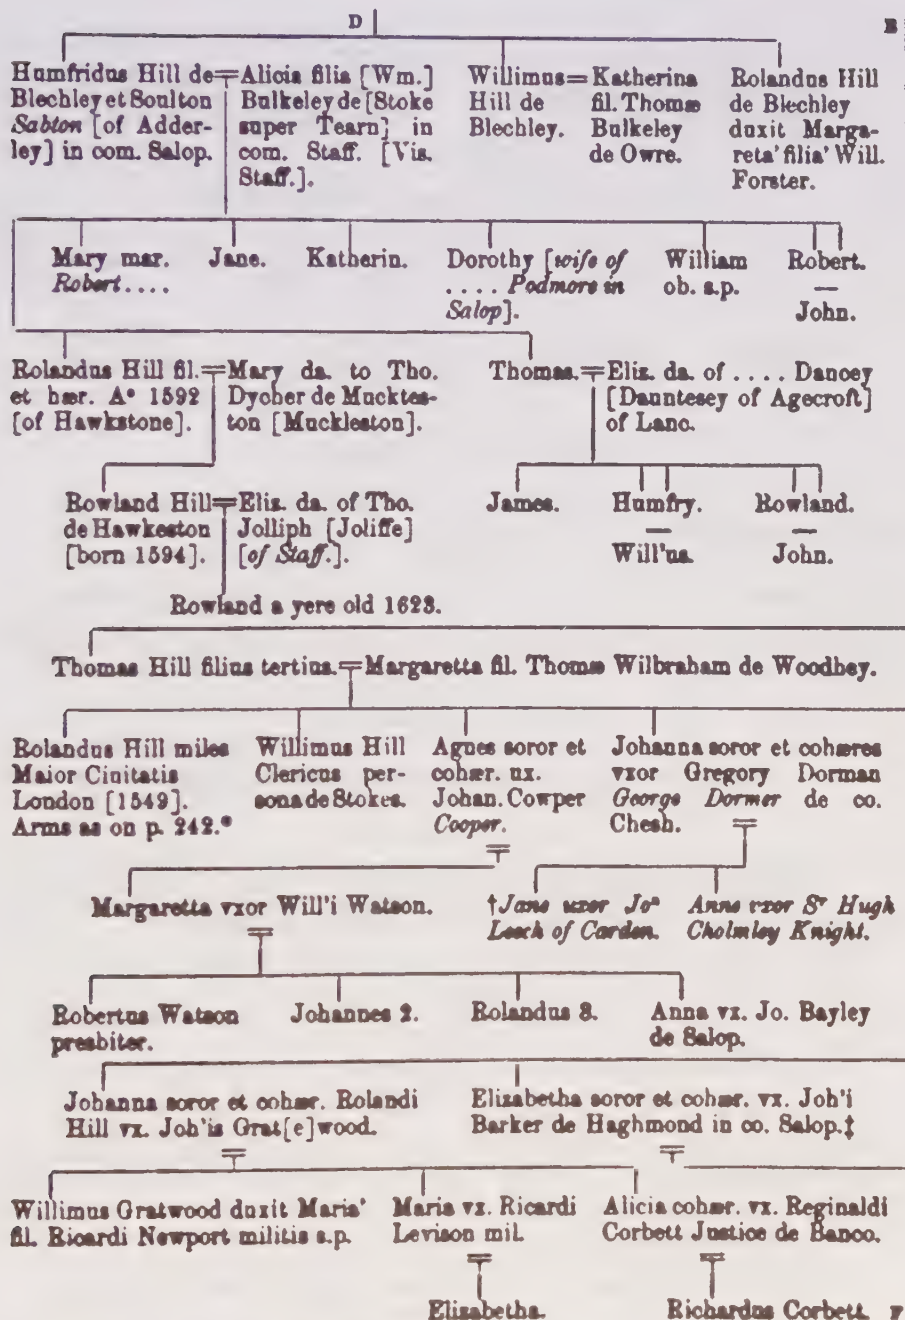 D
B
Humfridus Hill de=Alicia filia [Wm.]
Blechley et Soulton
Sabton [of Adder-
ley] in com. Salop.
Bulkeley de [Stoke
super Tearn] in
com. Staff. [Vis.
Staff.].
Willimus=Katherina
Hill de
Blechley.
fil. Thomæ
Bulkeley
de Owre.
Rolandus Hill
de Blechley
duxit Marga-
reta' filia' Will.
Forster.
Mary mar.
Robert....
Jane.
Katherin.
Dorothy [wife of
.... Podmore in
Salop].
William
ob. s.p.
Robert.
—
John.
Rolandus Hill fil.=Mary da. to Tho.
et hær. A° 1592
[of Hawkstone].
Dycher de Muckles-
ton [Muckleston].
Thomas.=Eliz. da. of .... Dancey
[Dauntesey of Agecroft]
of Lanc.
Rowland Hill=Eliz. da. of Tho.
de Hawkeston
[born 1594].
Jolliph [Joliffe]
[of Staff.].
James.
Humfry.
—
Will'us.
Rowland.
—
John.
Rowland a yere old 1623.
Thomas Hill filius tertius.=Margaretta fil. Thomæ Wilbraham de Woodhey.
Rolandus Hill miles
Maior Ciuitatis
London [1549].
Arms as on p. 242.*
Willimus Hill
Clericus per-
sona de Stokes.
Agnes soror et
cohær. ux.
Johan. Cowper
Cooper.
Johanna soror et cohæres
vxor Gregory Dorman
George Dormer de co.
Chesh.
Margaretta vxor Will'i Watson.
†Jane uxor Joⁿ
Leech of Carden.
Anne vxor Sʳ Hugh
Cholmley Knight.
Robertus Watson
presbiter.
Johannes 2.
Rolandus 3.
Anna vx. Jo. Bayley
de Salop.
Johanna soror et cohær. Rolandi
Hill vx. Joh'is Grat[e]wood.
Elizabetha soror et cohær. vx. Joh'i
Barker de Haghmond in co. Salop.‡
Willimus Gratwood duxit Maria'
fil. Ricardi Newport militis s.p.
Maria vx. Ricardi
Levison mil.
Alicia cohær. vx. Reginaldi
Corbett Justice de Banco.
Elizabetha.
Richardus Corbett.
F